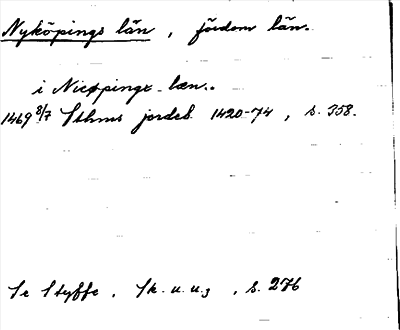 Nyköpings län, fördom län.
i Nicøpingx læn..
1469 8/7 Sthms jordeb. 1420-74, s. 358.
Se Styffe. Sk. u. u. 3, s. 276